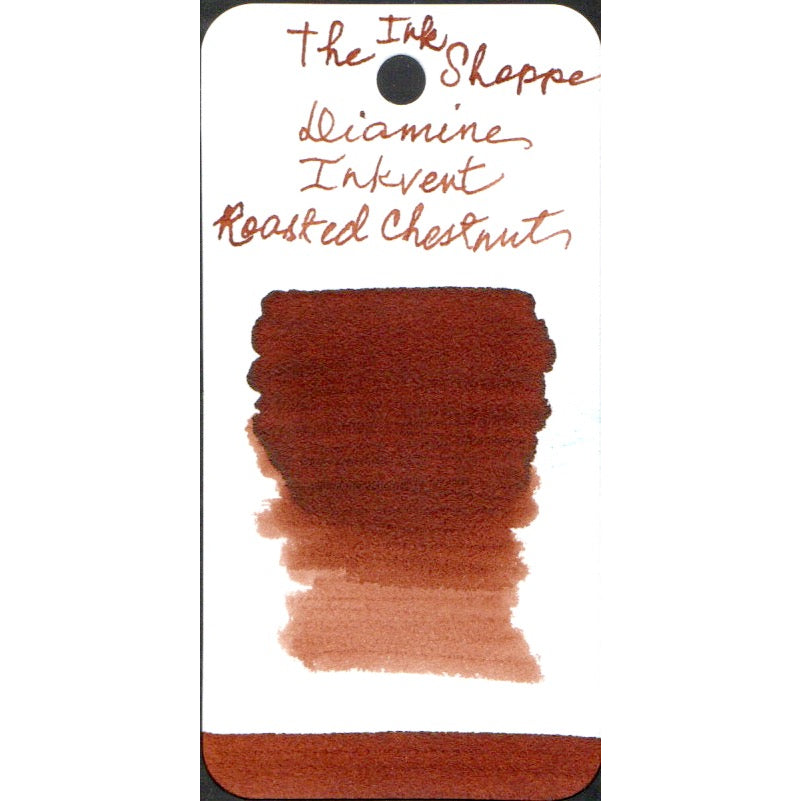 The Ink Shoppe
Diamine
Inkvent
Roasted Chestnut